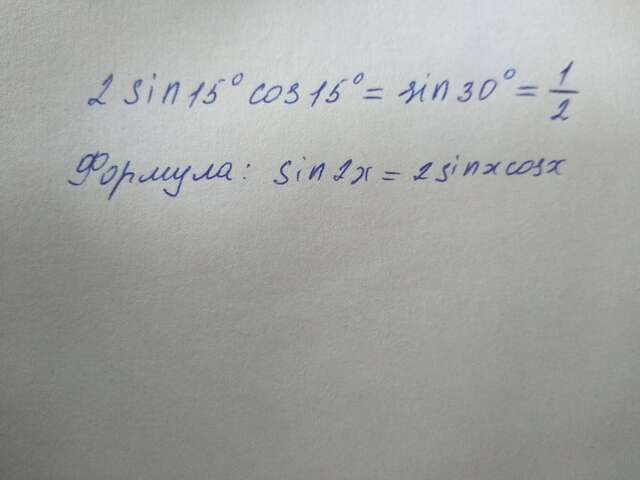 2 sin 15° cos 15° = sin 30° = 1/2
Формула: sin 2x = 2 sin x cos x